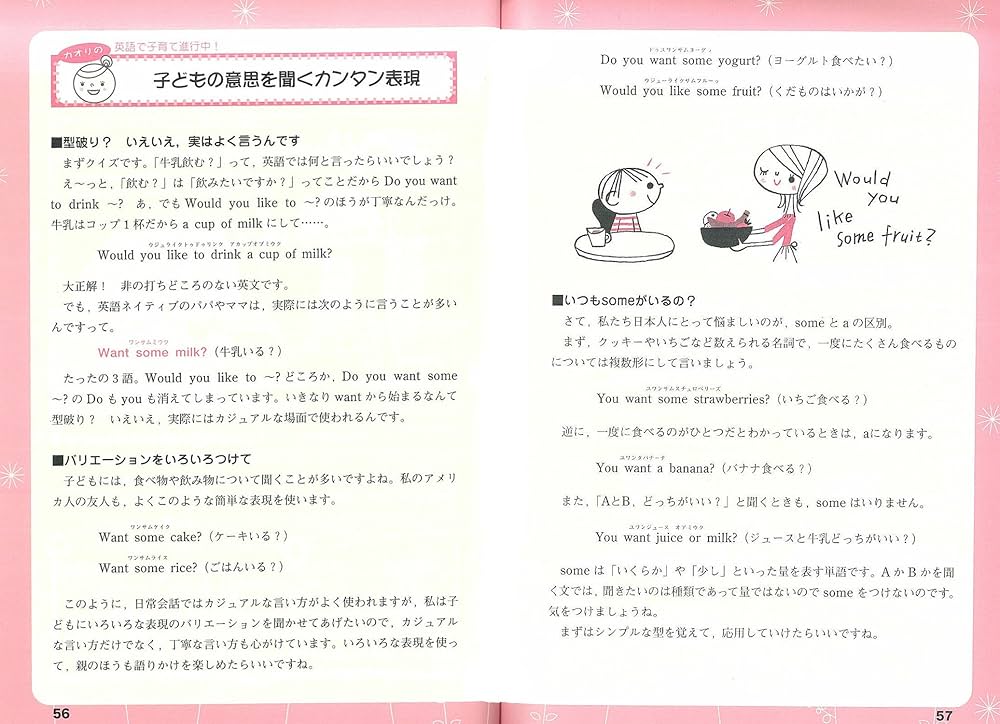 カオリの 英語で子育て進行中！
子どもの意思を聞くカンタン表現
■型破り？ いえいえ，実はよく言うんです
まずクイズです。「牛乳飲む？」って，英語では何と言ったらいいでしょう？
え～っと，「飲む？」は「飲みたいですか？」ってことだからDo you want
to drink ～? あ，でもWould you like to ～?のほうが丁寧なんだっけ。
牛乳はコップ1杯だからa cup of milkにして……。
ウジュライクトゥドゥリンク アカップオブミウク
Would you like to drink a cup of milk?
大正解！ 非の打ちどころのない英文です。
でも，英語ネイティブのパパやママは，実際には次のように言うことが多い
んですって。
ワンサムミウク
Want some milk?（牛乳いる？）
たったの3語。Would you like to ～?どころか，Do you want some
～?のDoもyouも消えてしまっています。いきなりwantから始まるなんて
型破り？ いえいえ，実際にはカジュアルな場面で使われるんです。
■バリエーションをいろいろつけて
子どもには，食べ物や飲み物について聞くことが多いですよね。私のアメリ
カ人の友人も，よくこのような簡単な表現を使います。
ワンサムケイク
Want some cake?（ケーキいる？）
ワンサムライス
Want some rice?（ごはんいる？）
このように，日常会話ではカジュアルな言い方がよく使われますが，私は子
どもにいろいろな表現のバリエーションを聞かせてあげたいので，カジュアル
な言い方だけでなく，丁寧な言い方も心がけています。いろいろな表現を使っ
て，親のほうも語りかけを楽しめたらいいですね。
56
ドゥユワンサムヨーグゥ
Do you want some yogurt?（ヨーグルト食べたい？）
ウジューライクサムフルーッ
Would you like some fruit?（くだものはいかが？）
Would
you
like
some fruit?
■いつもsomeがいるの？
さて，私たち日本人にとって悩ましいのが，someとaの区別。
まず，クッキーやいちごなど数えられる名詞で，一度にたくさん食べるもの
については複数形にして言いましょう。
ユワンサムスチュロベリーズ
You want some strawberries?（いちご食べる？）
逆に，一度に食べるのがひとつだとわかっているときは，aになります。
ユワンタバナーナ
You want a banana?（バナナ食べる？）
また，「AとB，どっちがいい？」と聞くときも，someはいりません。
ユワンジュース オアミウク
You want juice or milk?（ジュースと牛乳どっちがいい？）
someは「いくらか」や「少し」といった量を表す単語です。AかBかを聞
く文では，聞きたいのは種類であって量ではないのでsomeをつけないのです。
気をつけましょうね。
まずはシンプルな型を覚えて，応用していけたらいいですね。
57